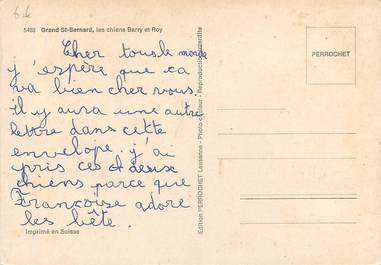 64
5468 Grand St-Bernard, les chiens Barry et Roy
Cher tous le monde
j'espère que ca
va bien cher vous.
il y aura une autre
lettre dans cette
envelope. j'ai
pris ces deux
chiens parce que
Françoise adore
les bête.
Imprimé en Suisse
Edition PERROCHET Lausanne - Photo couleur - Reproduction interdite
PERROCHET